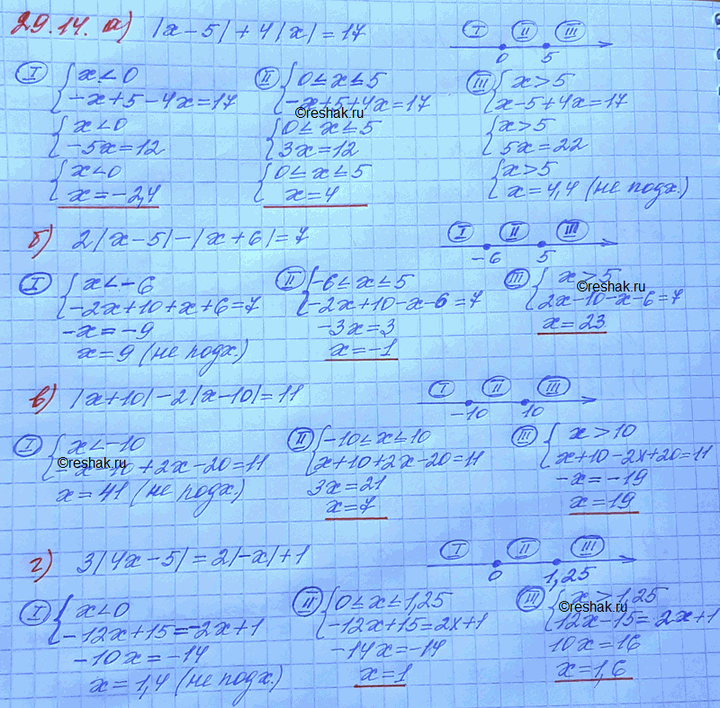 29.14. а) |x-5|+4|x|=17
I II III
0 5
I { x<0
-x+5-4x=17
{ x<0
-5x=12
{ x<0
x=-2,4
II { 0≤x≤5
-x+5+4x=17
reshak.ru
{ 0≤x≤5
3x=12
{ 0≤x≤5
x=4
III { x>5
x-5+4x=17
{ x>5
5x=22
{ x>5
x=4,4 (не подх.)
б) 2|x-5|-|x+6|=7
I II III
-6 5
I { x<-6
-2x+10+x+6=7
-x=-9
x=9 (не подх.)
II { -6≤x≤5
-2x+10-x-6=7
-3x=3
x=-1
III { x>5
reshak.ru
2x-10-x-6=7
x=23
в) |x+10|-2|x-10|=11
I II III
-10 10
I { x<-10
reshak.ru
-x-10+2x-20=11
x=41 (не подх.)
II { -10≤x≤10
x+10+2x-20=11
3x=21
x=7
III { x>10
x+10-2x+20=11
-x=-19
x=19
г) 3|4x-5|=2|-x|+1
I II III
0 1,25
I { x<0
-12x+15=-2x+1
-10x=-14
x=1,4 (не подх.)
II { 0≤x≤1,25
-12x+15=2x+1
-14x=-14
x=1
III { x>1,25
reshak.ru
12x-15=2x+1
10x=16
x=1,6